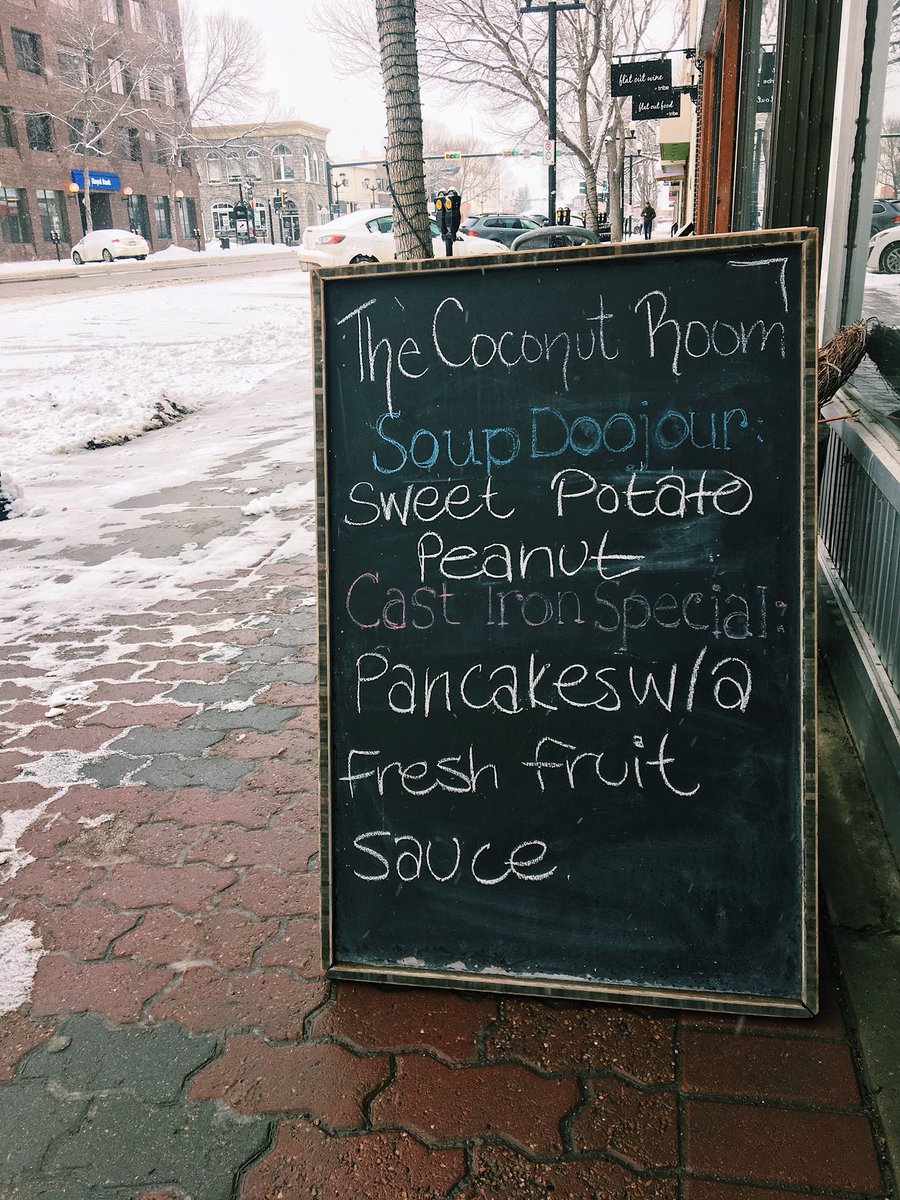 flat out wine
tribe
flat out food
tribe
Royal Bank
The Coconut Room
Soup Doojour:
Sweet Potato
Peanut
Cast Iron Special:
Pancakes w/a
Fresh fruit
Sauce.